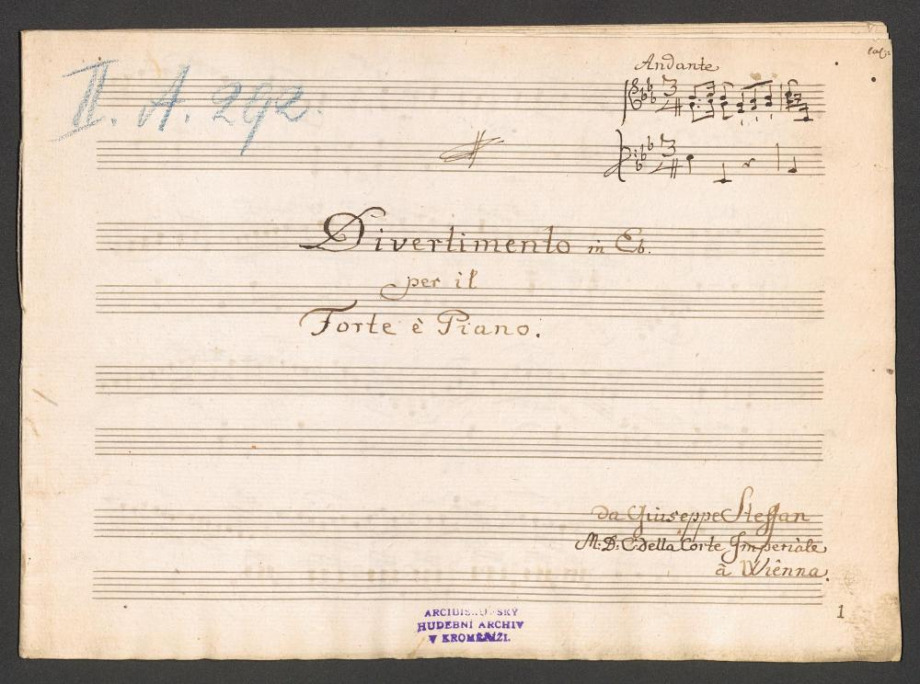 II. A. 292.
Andante
Divertimento in Eb.
per il
Forte è Piano.
da Giuseppe Steffan
M: D: C: della Corte Imperiale
à Wienna.
HUDEBNÍ ARCHIV
V KROMĚŘÍŽI.
1